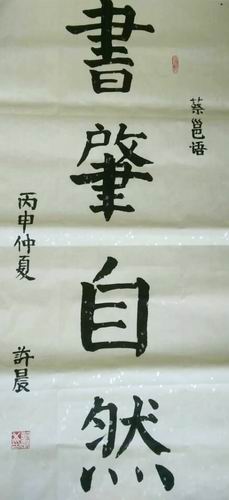 書肇自然
蔡邕语
丙申仲夏
許晨